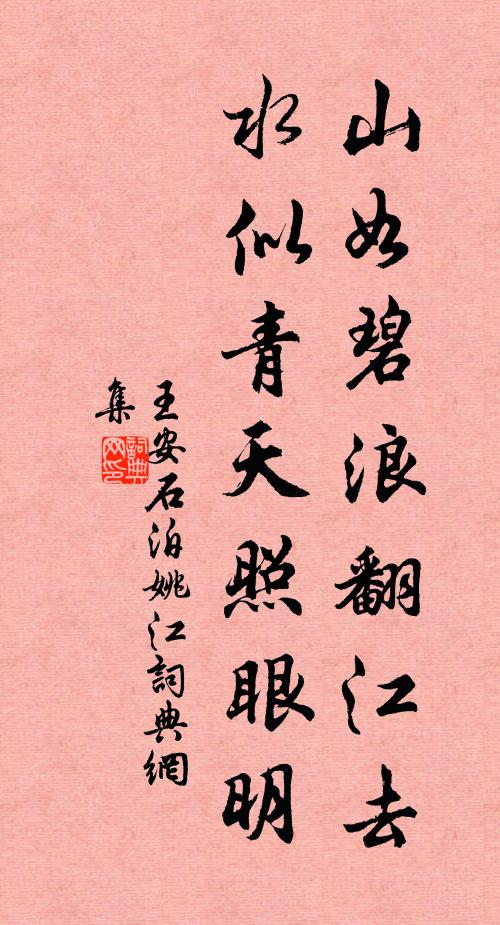 山如碧浪翻江去
水似青天照眼明
王安石泊姚江詞典網
集
詞典
网印